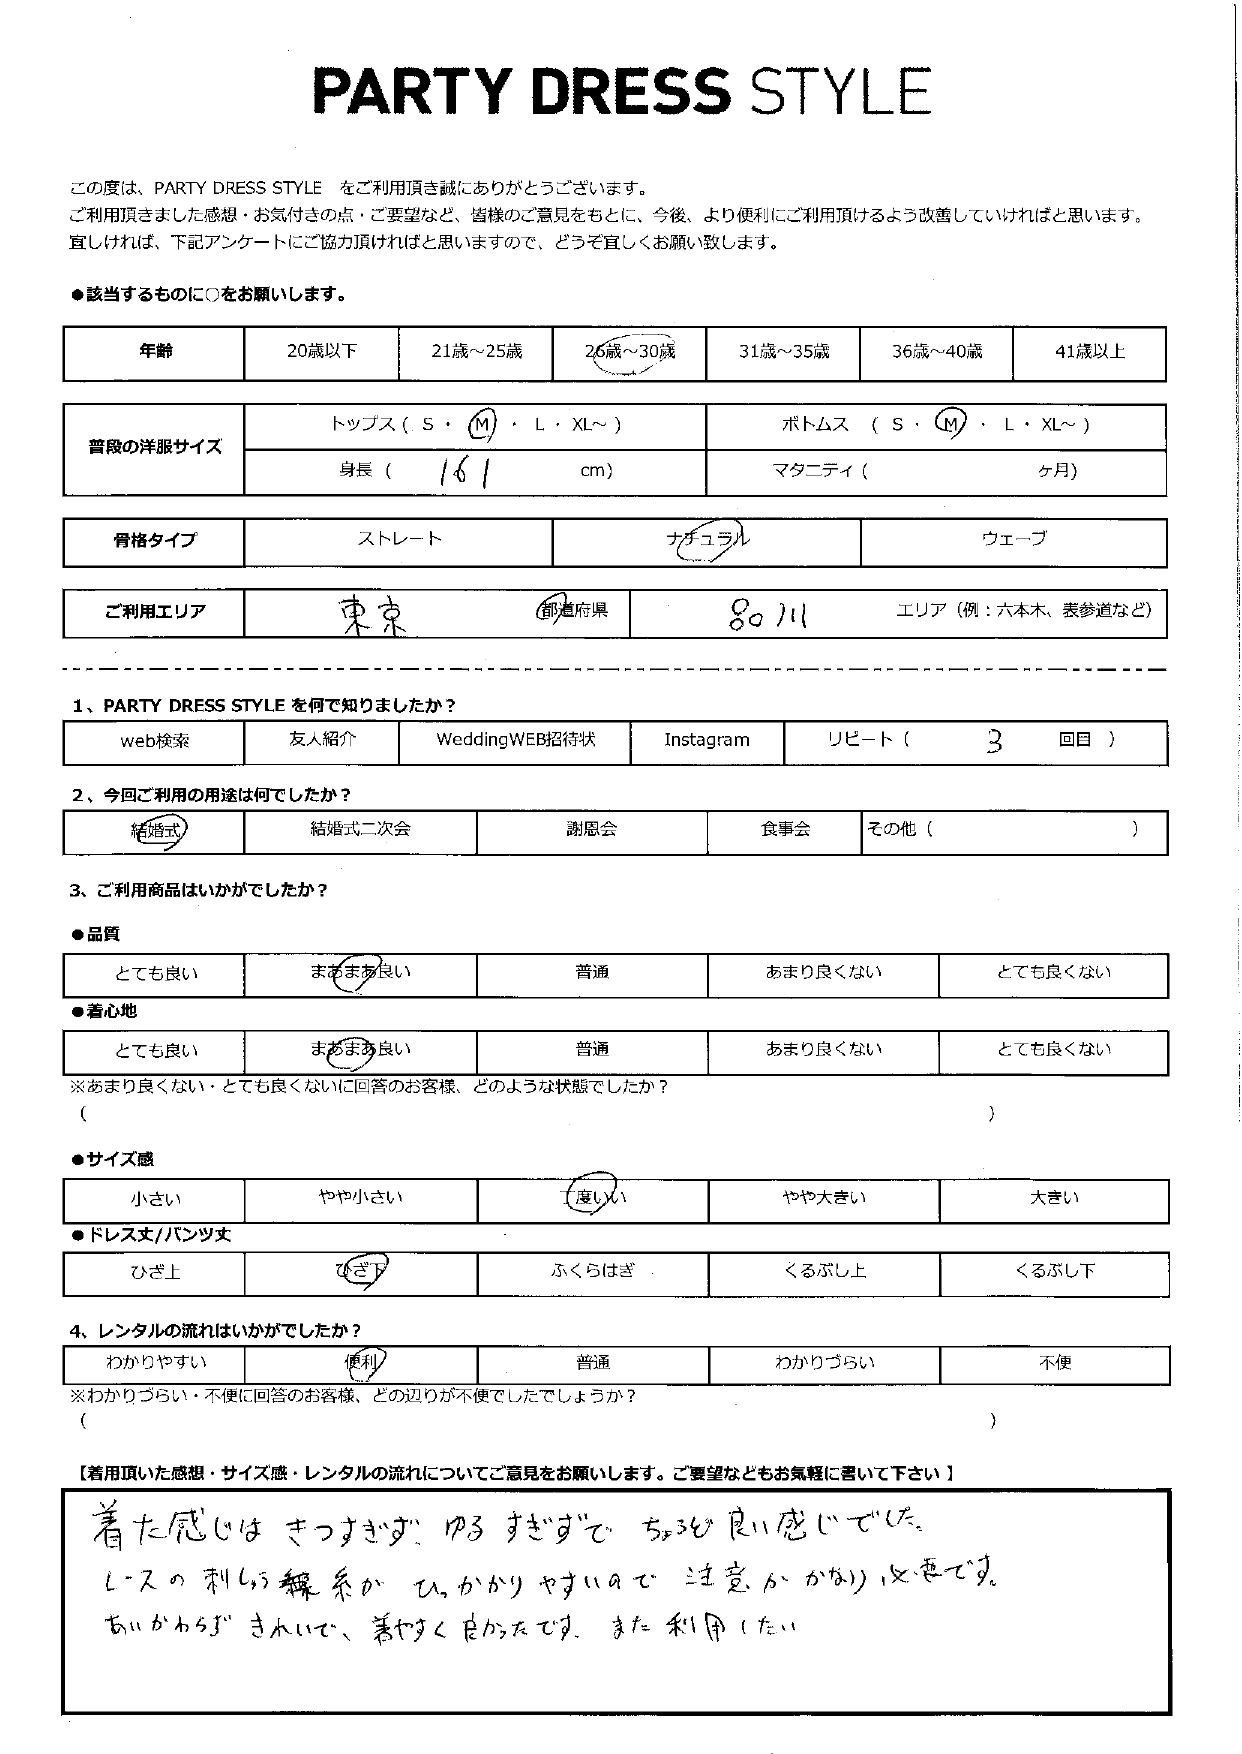 PARTY DRESS STYLE
この度は、PARTY DRESS STYLE をご利用頂き誠にありがとうございます。
ご利用頂きました感想・お気付きの点・ご要望など、皆様のご意見をもとに、今後、より便利にご利用頂けるよう改善していければと思います。
宜しければ、下記アンケートにご協力頂ければと思いますので、どうぞ宜しくお願い致します。
●該当するものに○をお願いします。
年齢 20歳以下 21歳～25歳 26歳～30歳 31歳～35歳 36歳～40歳 41歳以上
普段の洋服サイズ
トップス ( S ・ M ・ L ・ XL～ ) ボトムス ( S ・ M ・ L ・ XL～ )
身長 ( 161 cm) マタニティ ( ヶ月)
骨格タイプ ストレート ナチュラル ウェーブ
ご利用エリア 東京 都道府県 品川 エリア（例：六本木、表参道など）
1、PARTY DRESS STYLE を何で知りましたか？
web検索 友人紹介 WeddingWEB招待状 Instagram リピート ( 3 回目 )
2、今回ご利用の用途は何でしたか？
結婚式 結婚式二次会 謝恩会 食事会 その他 ( )
3、ご利用商品はいかがでしたか？
●品質
とても良い まあまあ良い 普通 あまり良くない とても良くない
●着心地
とても良い まあまあ良い 普通 あまり良くない とても良くない
※あまり良くない・とても良くないに回答のお客様、どのような状態でしたか？
( )
●サイズ感
小さい やや小さい 丁度いい やや大きい 大きい
●ドレス丈/パンツ丈
ひざ上 ひざ下 ふくらはぎ くるぶし上 くるぶし下
4、レンタルの流れはいかがでしたか？
わかりやすい 便利 普通 わかりづらい 不便
※わかりづらい・不便に回答のお客様、どの辺りが不便でしたでしょうか？
( )
【着用頂いた感想・サイズ感・レンタルの流れについてご意見をお願いします。ご要望などもお気軽に書いて下さい 】
着た感じは きつすぎず、ゆるすぎずで ちょうど良い感じでした。
レースの刺しゅう 糸が ひっかかりやすいので 注意が かなり必要です。
あいかわらず きれいで、着やすく良かったです。また利用したい